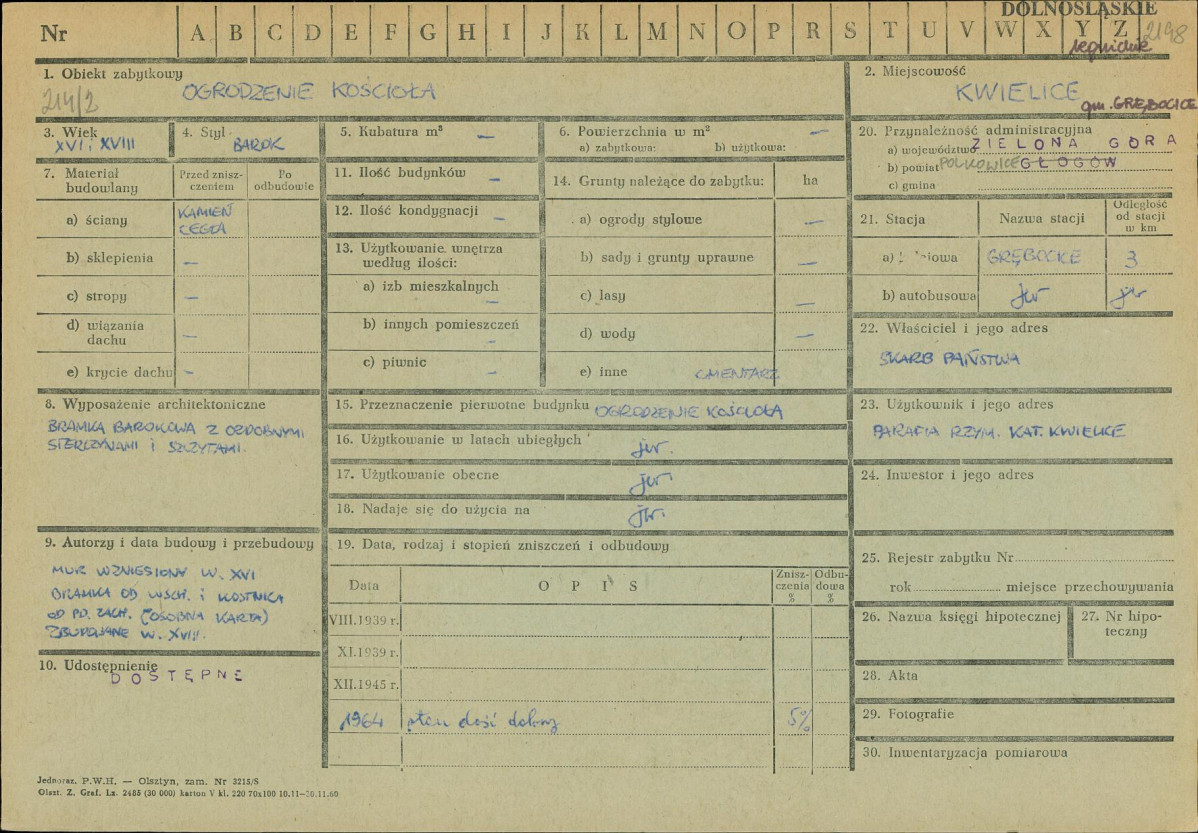 DOLNOŚLĄSKIE
Nr A B C D E F G H I J K L M N O P R S T U V W X Y Z 2198
legnickie
1. Obiekt zabytkowy
214/2 OGRODZENIE KOŚCIOŁA
2. Miejscowość
KWIELICE
gm. GRĘBOCICE
3. Wiek
XVI i XVIII
4. Styl
BAROK
5. Kubatura m³ —
6. Powierzchnia w m² —
a) zabytkowa: b) użytkowa:
20. Przynależność administracyjna
a) województwo ZIELONA GÓRA
b) powiat POLKOWICE GŁOGÓW
c) gmina
7. Materiał budowlany
Przed zniszczeniem
Po odbudowie
a) ściany KAMIEŃ
CEGŁA
b) sklepienia —
c) stropy —
d) wiązania dachu —
e) krycie dachu —
11. Ilość budynków —
12. Ilość kondygnacji —
13. Użytkowanie wnętrza
według ilości:
a) izb mieszkalnych —
b) innych pomieszczeń —
c) piwnic —
14. Grunty należące do zabytku: ha
a) ogrody stylowe —
b) sady i grunty uprawne —
c) lasy —
d) wody —
e) inne CMENTARZ
21. Stacja Nazwa stacji Odległość
od stacji
w km
a) GRĘBOCICE 3
b) autobusowa jw jw
22. Właściciel i jego adres
SKARB PAŃSTWA
8. Wyposażenie architektoniczne
BRAMKA BAROKOWA Z OZDOBNYMI
STERCZYNAMI I SZCZYTAMI.
15. Przeznaczenie pierwotne budynku OGRODZENIE KOŚCIOŁA
16. Użytkowanie w latach ubiegłych jw.
17. Użytkowanie obecne jw.
18. Nadaje się do użycia na jw.
23. Użytkownik i jego adres
PARAFIA RZYM. KAT. KWIELICE
24. Inwestor i jego adres
9. Autorzy i data budowy i przebudowy
MUR WZNIESIONY W. XVI
BRAMKA OD WSCH. I KOSTNICA
OD PD. ZACH. (OSOBNA KARTA)
ZBUDOWANE W. XVIII.
10. Udostępnienie
DOSTĘPNE
19. Data, rodzaj i stopień zniszczeń i odbudowy
Data OPIS Zniszczenia % Odbudowa %
VIII.1939 r.
XI.1939 r.
XII.1945 r.
1964 stan dość dobry 5%
25. Rejestr zabytku Nr
rok miejsce przechowywania
26. Nazwa księgi hipotecznej
27. Nr hipoteczny
28. Akta
29. Fotografie
30. Inwentaryzacja pomiarowa
Jednoraz. P.W.H. — Olsztyn, zam. Nr 3215/S
Olszt. Z. Graf. Lz. 2485 (30 000) karton V kl. 220 70x100 10.11—30.11.60